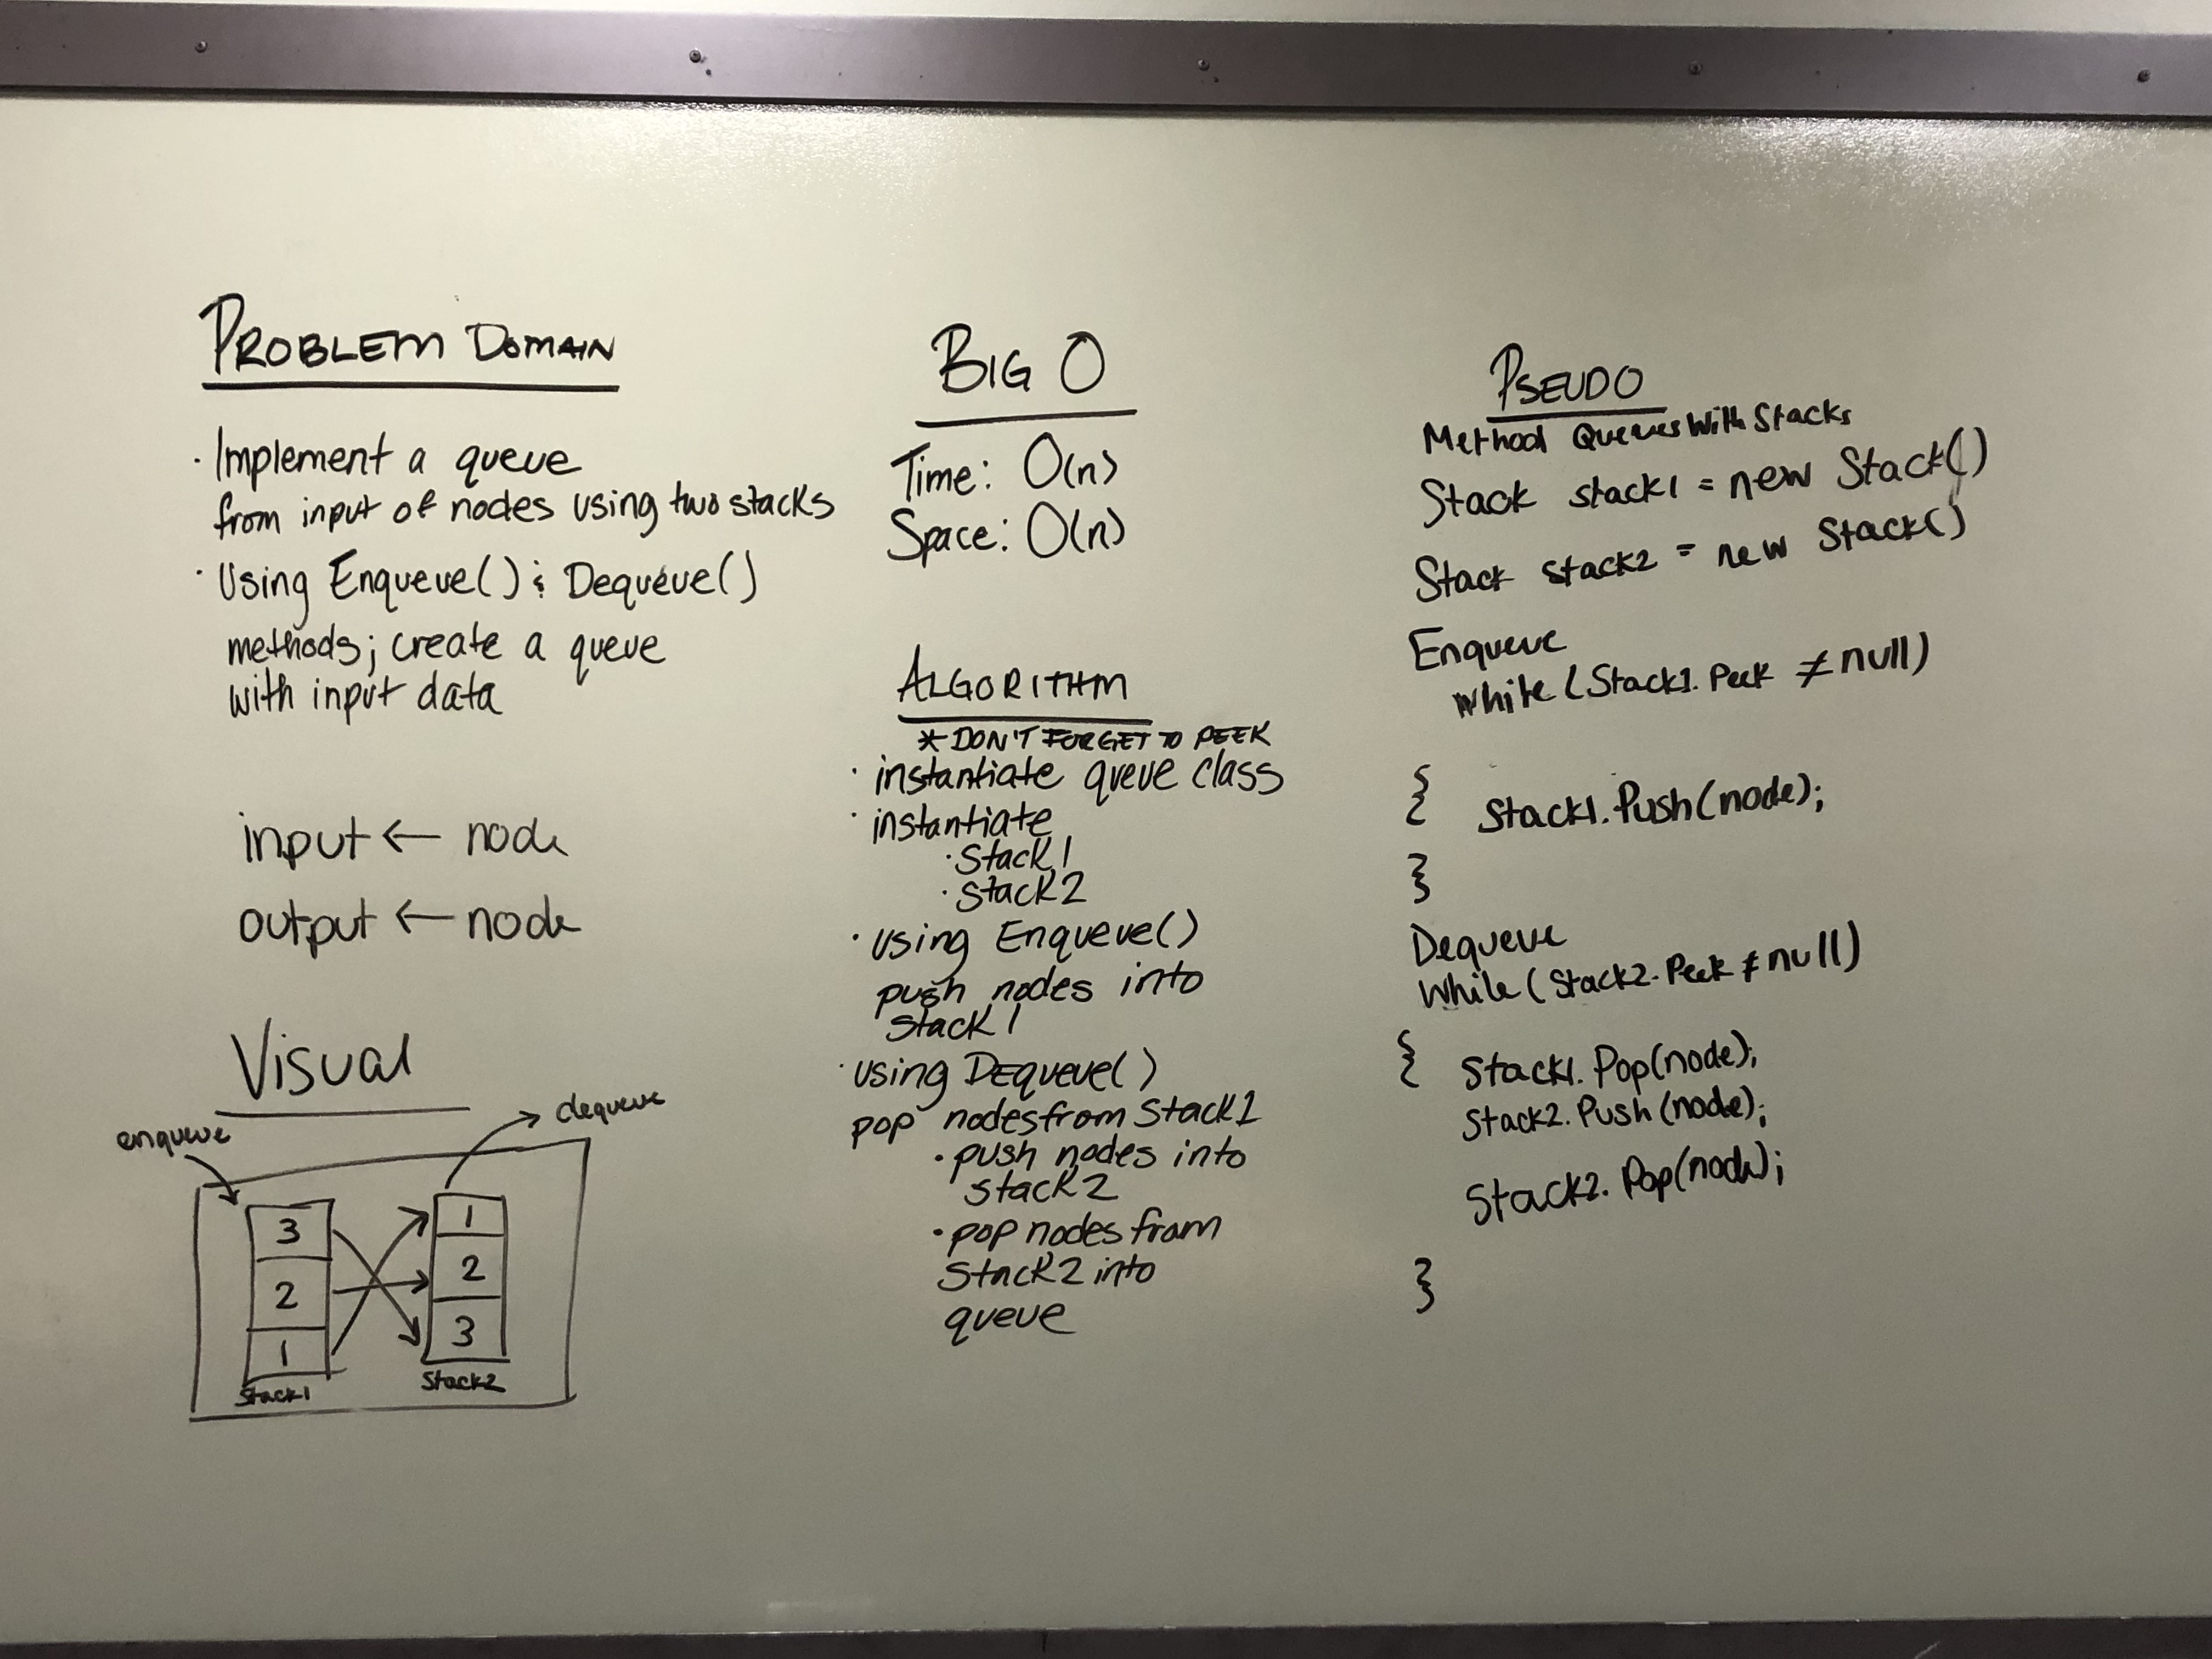 PROBLEM DOMAIN
· Implement a queue
from input of nodes using two stacks
· Using Enqueue() & Dequeue()
methods; create a queue
with input data
input ← node
output ← node
Visual
enqueue
dequeue
3
2
1
Stack1
1
2
3
Stack2
BIG O
Time: O(n)
Space: O(n)
ALGORITHM
* DON'T FORGET TO PEEK
· instantiate queue class
· instantiate
· Stack1
· Stack2
· using Enqueue()
push nodes into
Stack1
· using DEqueue()
pop nodes from Stack1
· push nodes into
stack2
· pop nodes from
Stack2 into
queue
PSEUDO
Method QueuesWithStacks
Stack stack1 = new Stack()
Stack stack2 = new Stack()
Enqueue
while (Stack1.Peek ≠ null)
{ Stack1.Push(node);
}
Dequeue
While (Stack2.Peek ≠ null)
{ Stack1.Pop(node);
Stack2.Push(node);
Stack2.Pop(node);
}